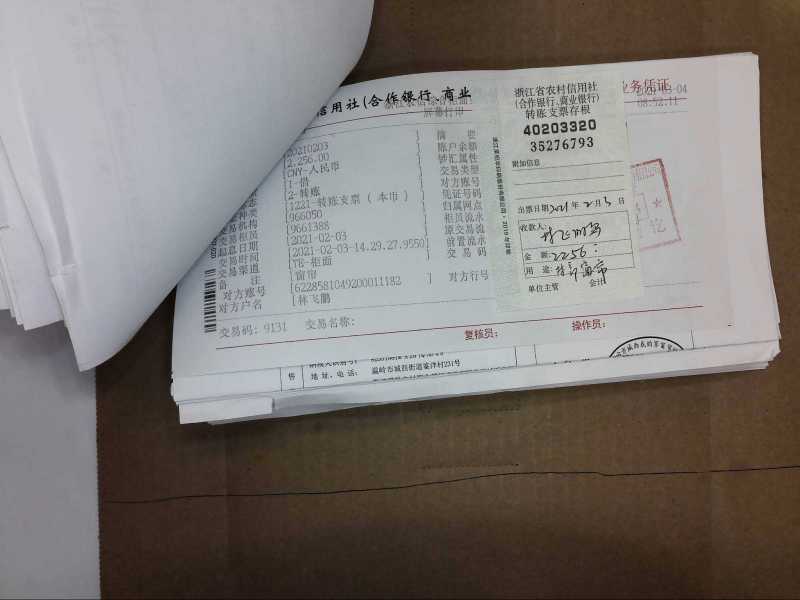 信用社(合作银行、商业
屏幕打印
业务凭证
08:52:11
20210203
2,256.00
CNY-人民币
1-借
2-转账
1221-转账支票(本币)
966050
9661388
2021-02-03
2021-02-03-14.29.27.9550
TE-柜面
窗帘
6228581049200011182
林飞鹏
种类
交易机构
交易柜员
起息日期
交易时间
交易渠道
备 注
对方账号
对方户名
摘 要
账户余额
钞汇属性
交易类型
对方账号
凭证号码
归属网点
柜员流水
原交易流
前置流水
交易码
对方行号
交易码: 9131 交易名称:
复核员:
操作员:
浙江省农村信用社
(合作银行、商业银行)
转账支票存根
40203320
35276793
附加信息
出票日期2021年2月3日
收款人:
林飞鹏
金 额:2256:
用 途:
单位主管 会计
售
地址、电话:
温岭市城西街道鉴洋村231号